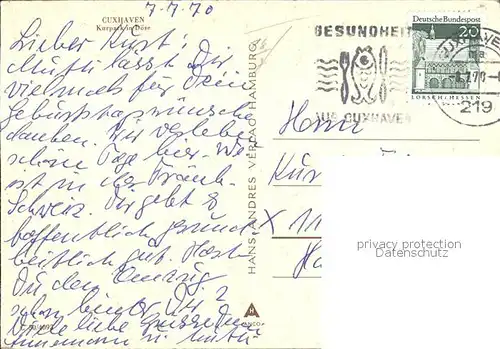 7-7-70
CUXHAVEN
Kurpark in Döse
Lieber Kurt!
Mutti lässt Dir
vielmals für Deine
Geburtstagswünsche
danken. Wir verleben
schöne Tage hier. We
ist in der Fränk.
Schweiz. Dir geht es
hoffentlich gesund-
heitlich gut. Hast
Du den Anzug
schon
Viele liebe Grüsse Dein
HANS ANDRES VERLAG HAMBURG
GESUNDHEIT
AUS CUXHAVEN
Deutsche Bundespost
20
LORSCH/HESSEN
CUXHAVEN
219
Herrn
Kur
X 11
privacy protection
Datenschutz